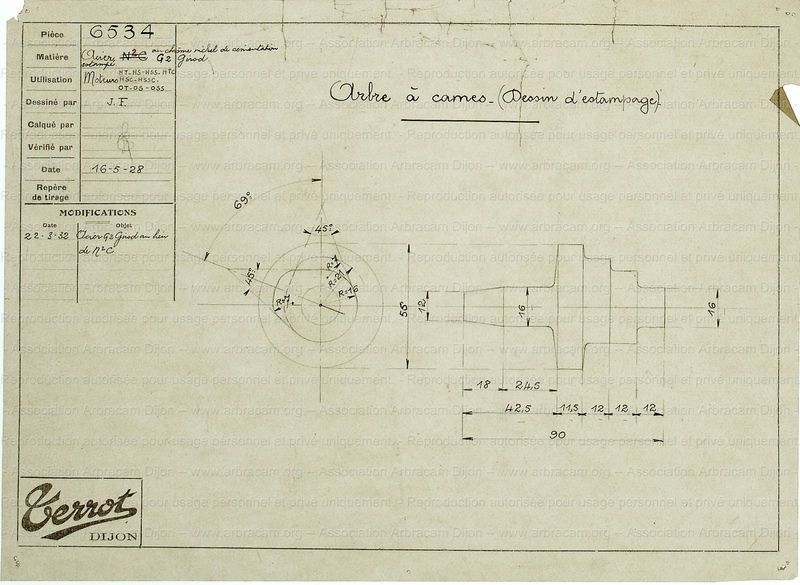 Pièce 6534
au chrome nickel de cementation
Matière Acier N²C G2 Guod
estampé
Utilisation Moteurs HT-HS-HSS-HTC
HSC-HSSC.
OT-OS-OSS.
Dessiné par J.F.
Calqué par
Vérifié par
Date 16-5-28
Repère
de tirage
MODIFICATIONS
Date Objet
22-3-32 Acier G2 Guod au lieu
de N²C
Arbre à cames. (Dessin d'estampage)
69°
45°
45°
R=7
R=21
R=16
R=7
55
12
16
16
18 24,5
42,5 11,5 12 12 12
90
Terrot
DIJON
Reproduction autorisée pour usage personnel et privé uniquement. – Association Arbracam Dijon – www.arbracam.org